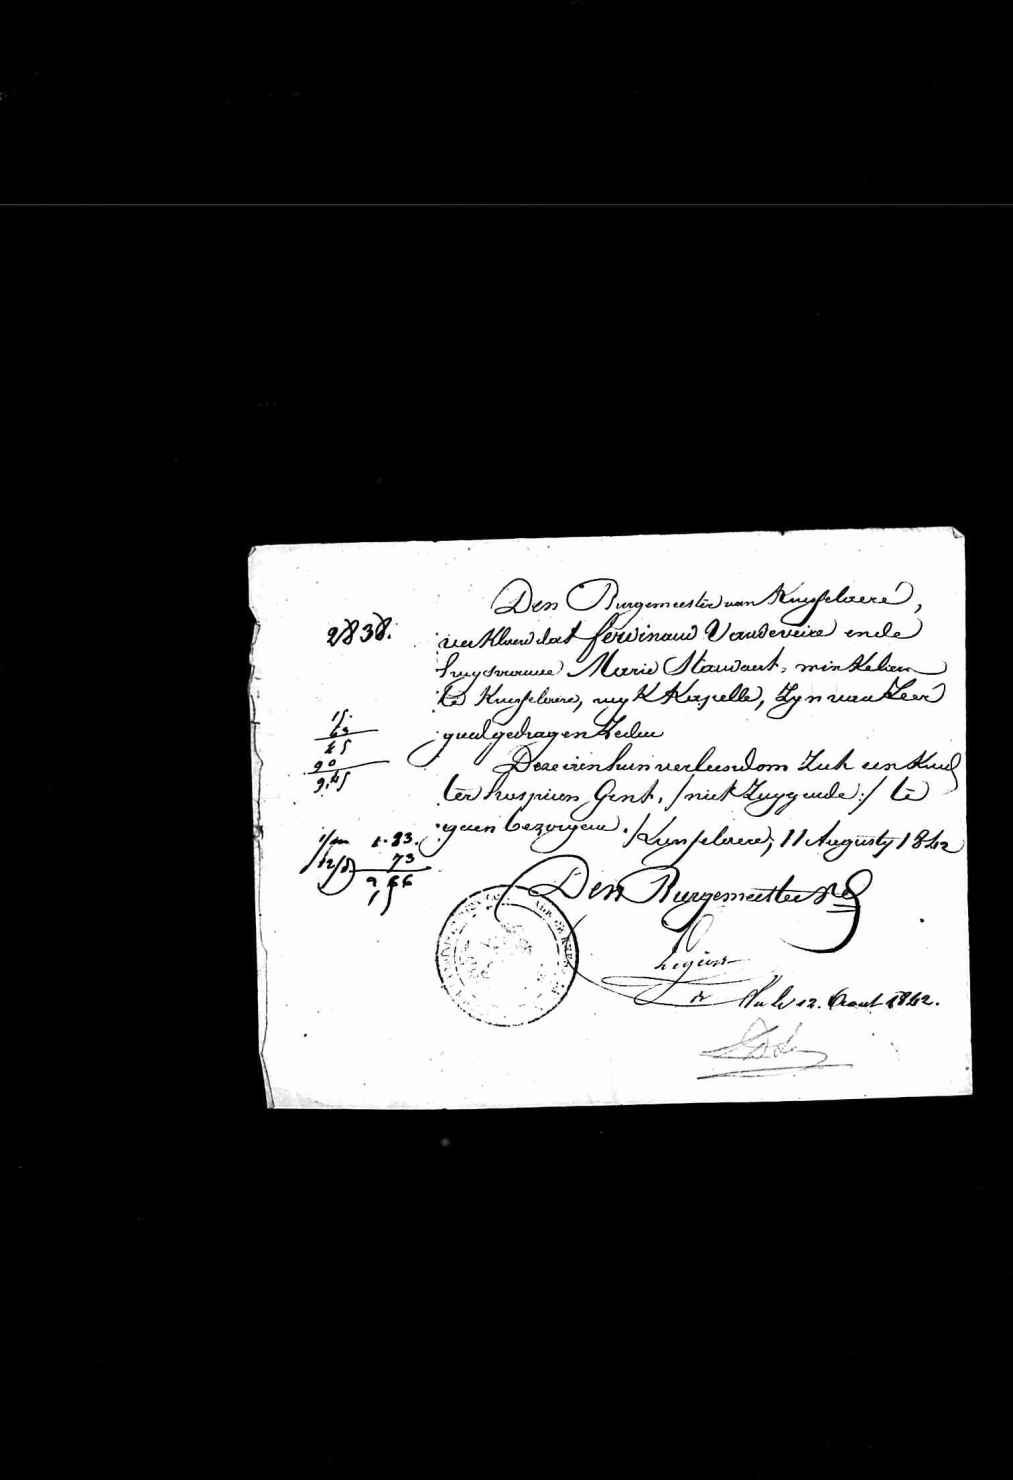 2838.
Den Burgemeester van Knesselaere,
verklaerd dat ferdinand Vandeveire ende
huysvrouwe Marie Standaert, winkelier
te Knesselaere, wyk Kapelle, Zyn van Zeer
goed gedrag en Zeden
Deze is om hun Zich een Kind
ter hospicien Gent, /niet Zuygende:/ te
gaen bezorgen. /Knesselaere, 11 Augusty 1842
Den Burgemeester
15.
45
90
9,45
1.93.
73
2,66
12. Aout 1842.